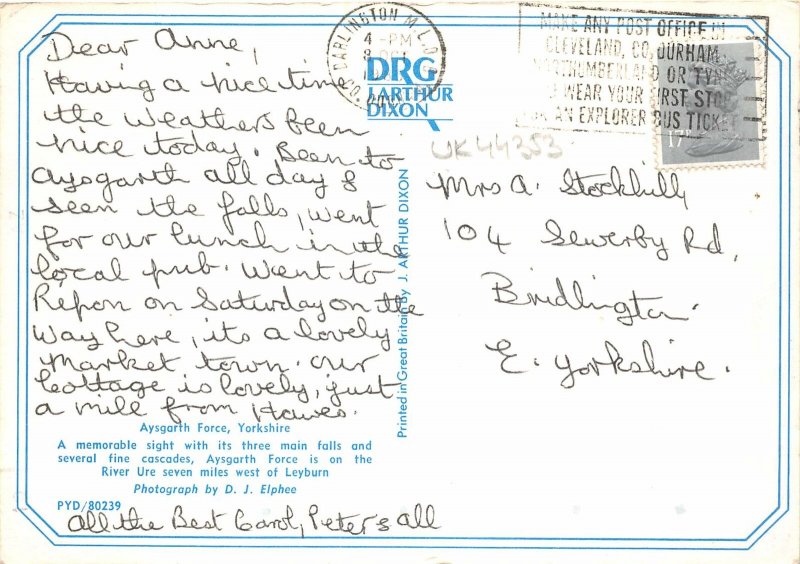 Dear Anne,
Having a nice time
the weathers been
nice today. Been to
Aysgarth all day &
seen the falls, went
for our lunch in the
local pub. Went to
Ripon on Saturday on the
way here, its a lovely
market town. our
Cottage is lovely, just
a mile from Hawes.
Aysgarth Force, Yorkshire
A memorable sight with its three main falls and
several fine cascades, Aysgarth Force is on the
River Ure seven miles west of Leyburn
Photograph by D. J. Elphee
PYD/80239
All the Best Carol, Peter & all
DARLINGTON
4-PM
DRG
J. ARTHUR
DIXON
Printed in Great Britain by J. ARTHUR DIXON
MAKE ANY POST OFFICE IN
CLEVELAND, CO. DURHAM
NORTHUMBERLAND OR
WEAR YOUR FIRST STOP
AN EXPLORER BUS TICKET
17
UK44353
Mrs A. Stockhill
104 Sewerby Rd,
Bridlington
E. Yorkshire.